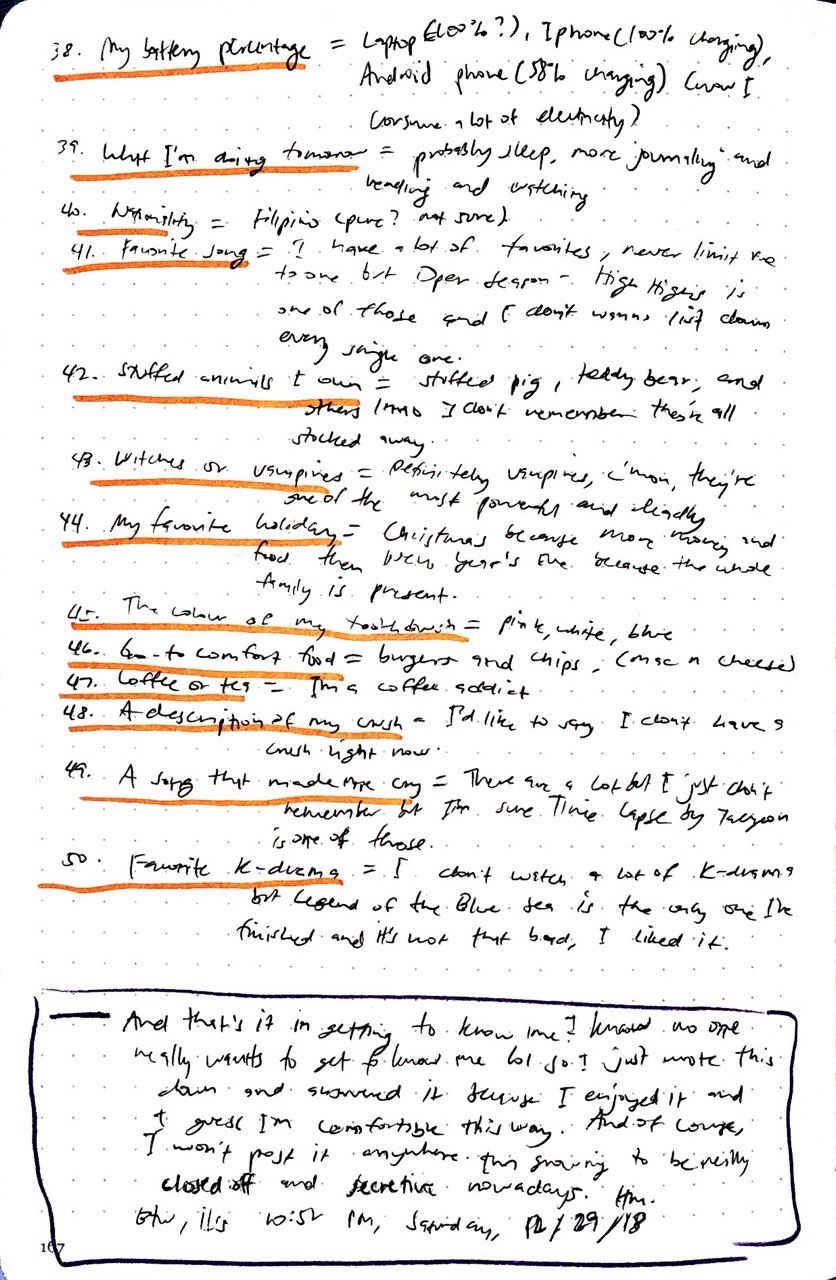 38. My battery percentage = Laptop (100%?), Iphone (100% charging),
Android phone (58% charging) (wow I
consume a lot of electricity)
39. What I'm doing tomorrow = probably sleep, more journaling and
reading and watching
40. Nationality = Filipino (pure? not sure)
41. Favorite song = I have a lot of favorites, never limit me
to one but Open Season - High Highs is
one of those and I don't wanna list down
every single one.
42. Stuffed animals I own = stuffed pig, teddy bear, and
others I don't remember they're all
stocked away.
43. Witches or vampires = Definitely vampires, c'mon, they're
one of the most powerful and deadly
44. My favorite holiday = Christmas because more money and
food then New Year's Eve because the whole
family is present.
45. The colour of my toothbrush = pink, white, blue
46. Go-to comfort food = burgers and chips, (mac n cheese)
47. Coffee or tea = I'm a coffee addict
48. A description of my crush = I'd like to say I don't have a
crush right now.
49. A song that made me cry = There are a lot but I just don't
remember but I'm sure Time Lapse by Taeyeon
is one of those.
50. Favorite K-drama = I don't watch a lot of K-drama
but Legend of the Blue Sea is the only one I've
finished and it's not that bad, I liked it.
And that's it in getting to know me! I know no one
really wants to get to know me lol so I just wrote this
down and answered it because I enjoyed it and
I guess I'm comfortable this way. And of course,
I won't post it anywhere. growing to be really
closed off and secretive nowadays. Hm.
Btw, it's 10:52 PM, Saturday, 12/29/18
167